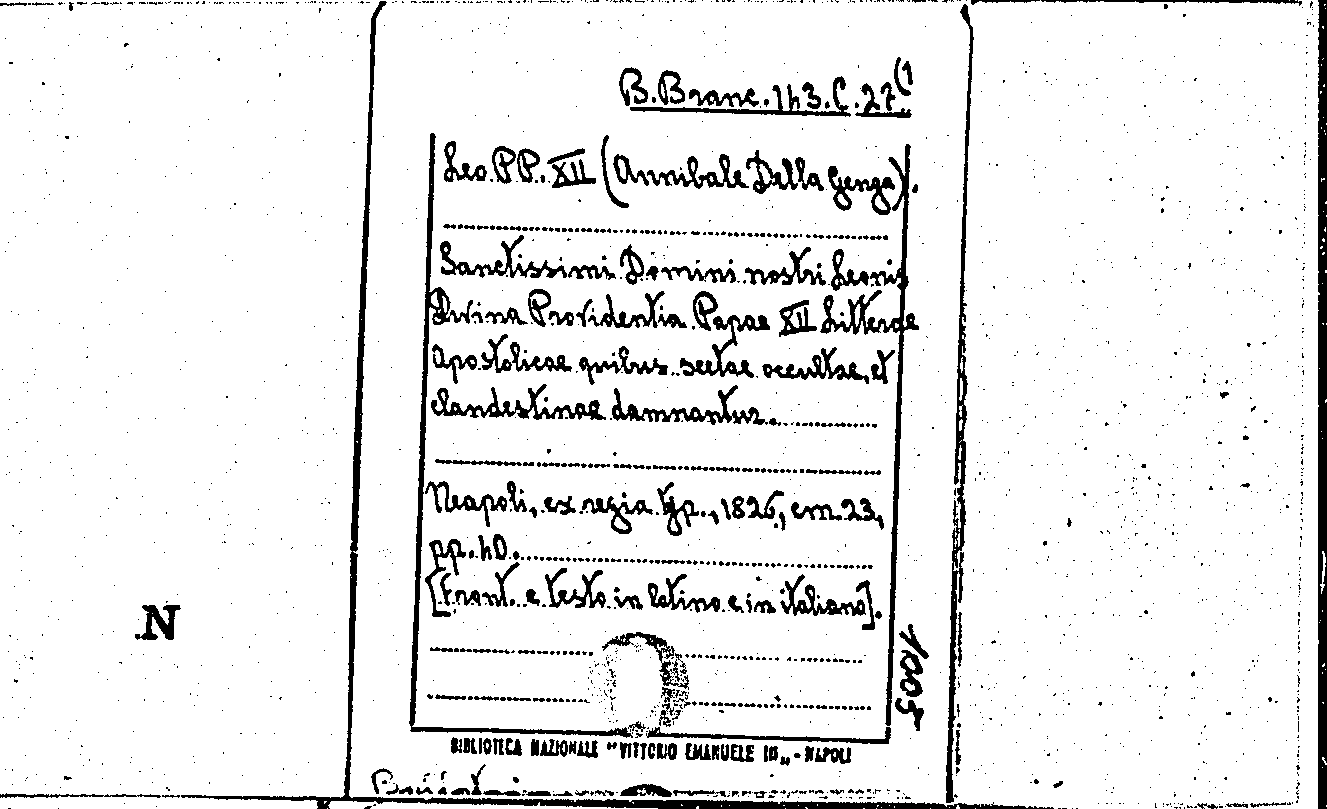 B. Branc. 143. C. 27(1
Leo PP. XII (Annibale Della Genga).
Sanctissimi Domini nostri Leonis
Divina Providentia Papae XII Litterae
apostolicae quibus sectae occultae, et
clandestinae damnantur.
Neapoli, ex regia typ., 1826, cm. 23,
pp. 40.
[Front. e testo in latino e in italiano].
N
1005
BIBLIOTECA NAZIONALE "VITTORIO EMANUELE III„ - NAPOLI